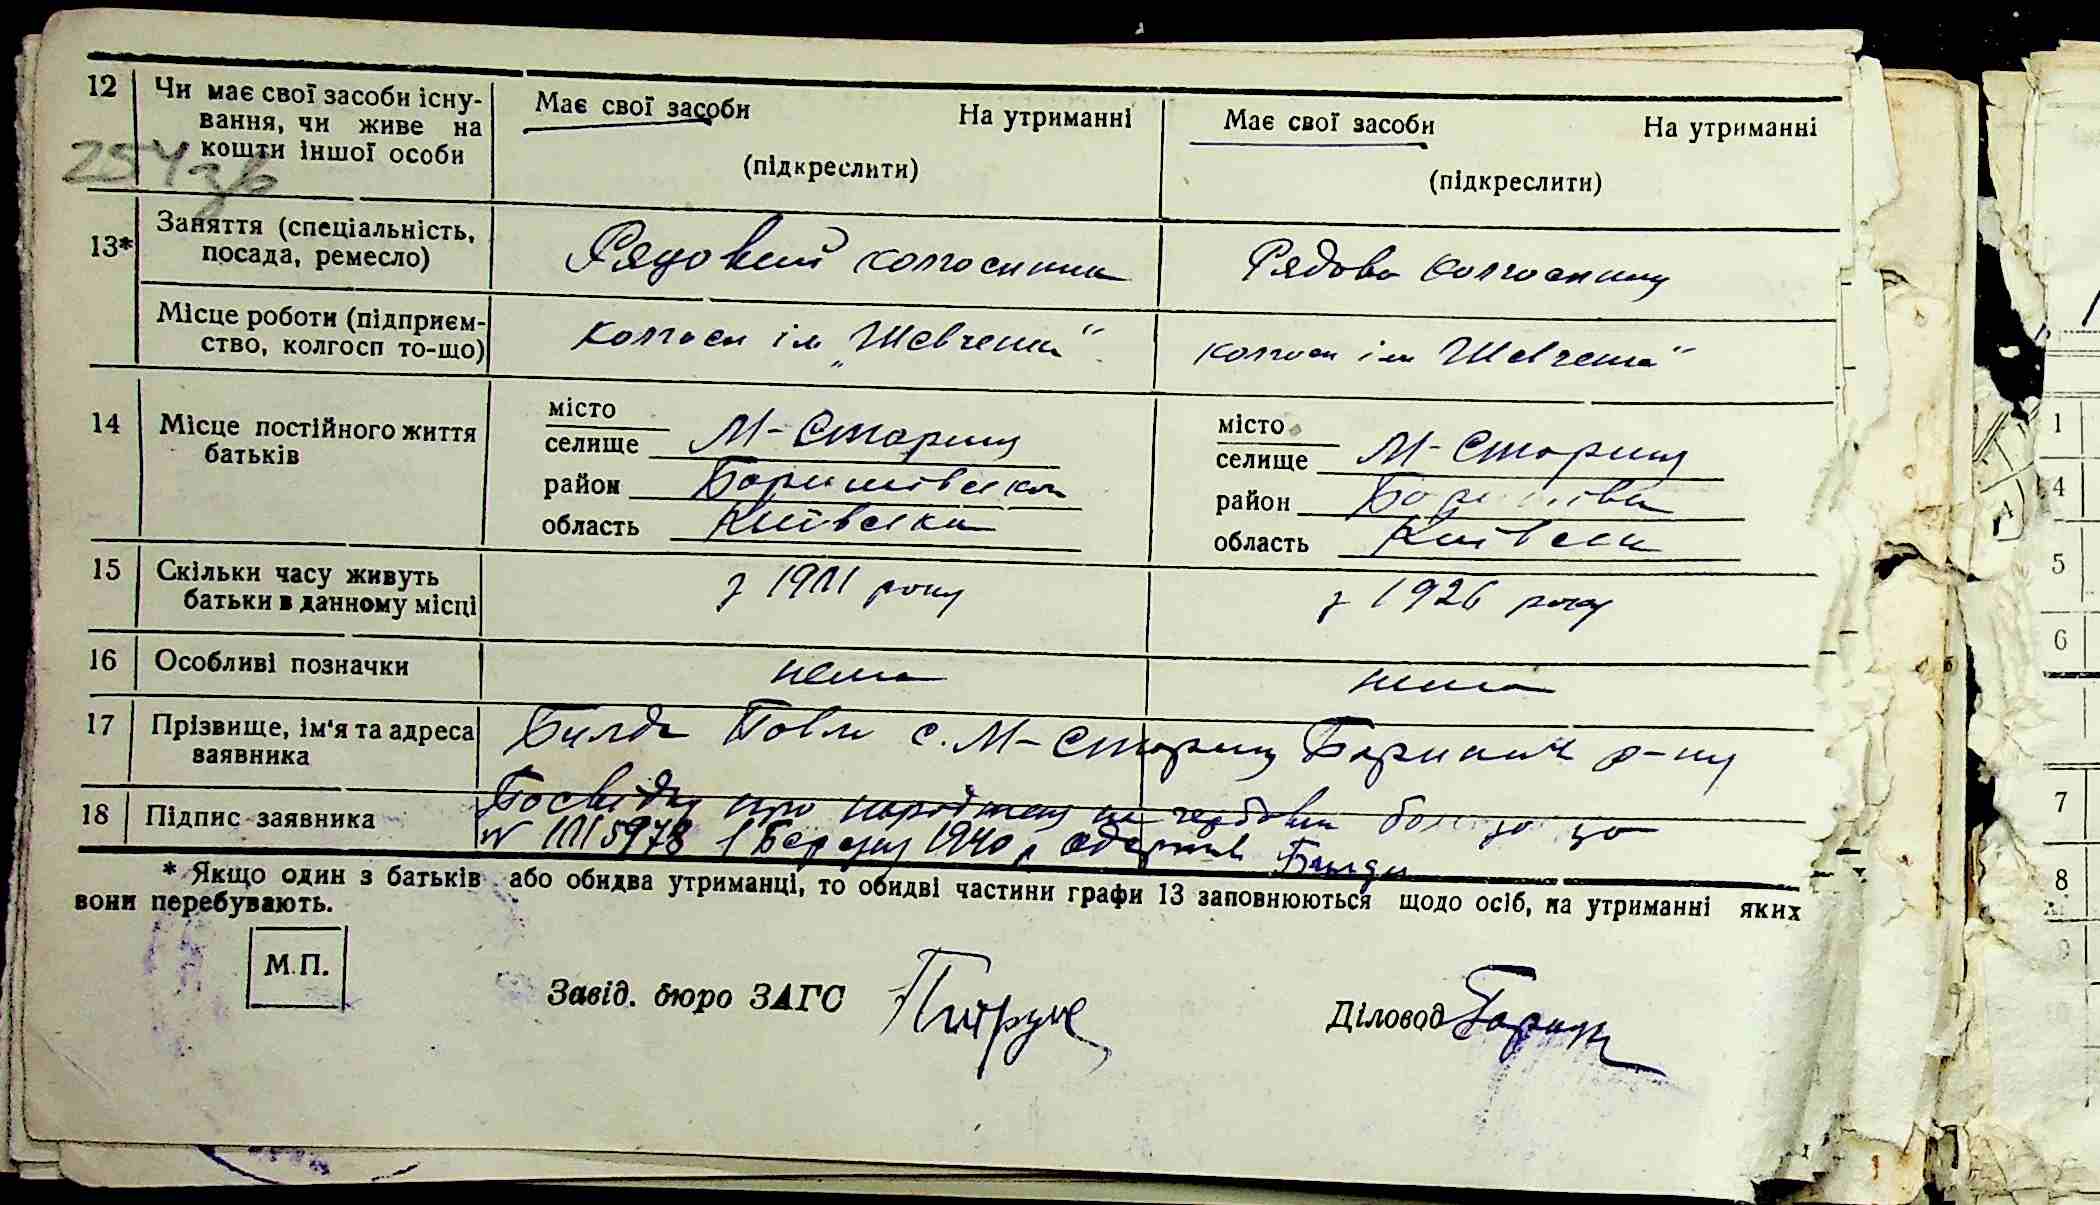 12 Чи має свої засоби існу- Має свої засоби На утриманні Має свої засоби На утриманні
вання, чи живе на
кошти іншої особи (підкреслити) (підкреслити)
254 зв
13* Заняття (спеціальність, Рядовий колгоспник Рядова колгоспниц
посада, ремесло)
Місце роботи (підприєм- колгосп ім „Шевченка“ колгосп ім Шевченка“
ство, колгосп то-що)
14 Місце постійного життя місто місто
батьків селище М-Стариця селище М-Стариця
район Бориспівська район Бориспівська
область Київська область Київська
15 Скільки часу живуть з 1911 року з 1926 року
батьки в данному місці
16 Особливі позначки нема нема
17 Прізвище, ім'я та адреса с. М-Стариця р-ну
заявника
Посвідку про народження
18 Підпис заявника
№ 5978 1 Березня 1940 р одержав
* Якщо один з батьків або обидва утриманці, то обидві частини графи 13 заповнюються щодо осіб, на утриманні яких
вони перебувають.
М.П.
Завід. бюро ЗАГС Діловод